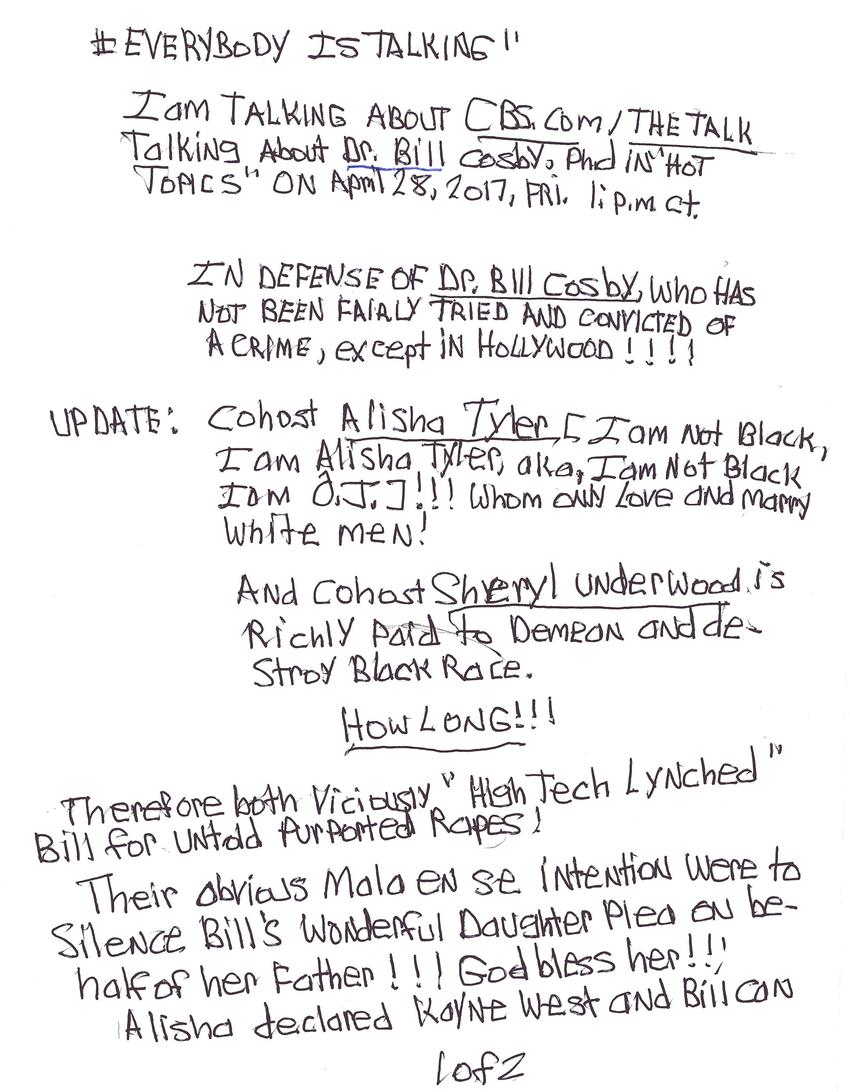 #EVERYBODY IS TALKING"
I am TALKING ABOUT CBS.com/THE TALK
Talking About Dr. Bill Cosby, Phd IN "HOT
TOPICS" ON April 28, 2017, FRI. 1: p.m ct.
IN DEFENSE OF Dr. Bill Cosby, WHO HAS
NOT BEEN FAIRLY TRIED AND CONVICTED OF
A CRIME, except IN HOLLYWOOD!!!!
UPDATE: Cohost Alisha Tyler, [I am Not Black,
I am Alisha Tyler, aka, I am Not Black
I am O.J.]!!! Whom only Love and Marry
White men!
And Cohost Sheryl Underwood is
Richly paid to Demeon and de-
stroy Black Race.
HOW LONG!!!
Therefore both Viciously "High Tech Lynched"
Bill for untold Purported Rapes!
Their obvious Mala en se intention were to
Silence Bill's Wonderful Daughter Plea on be-
half of her Father!!! God bless her!!!
Alisha declared Kayne West and Bill can
1 of 2